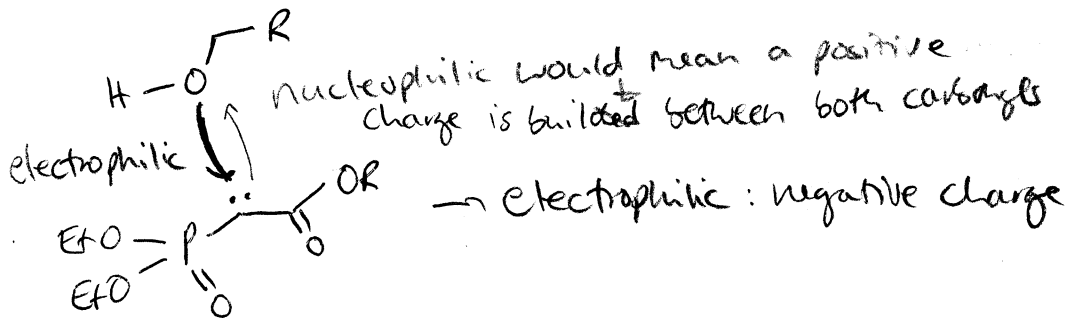 R
H — O
nucleophilic would mean a positive
charge is builded between both carbonyls
electrophilic
OR
→ electrophilic : negative charge
EtO — P
O
EtO
O